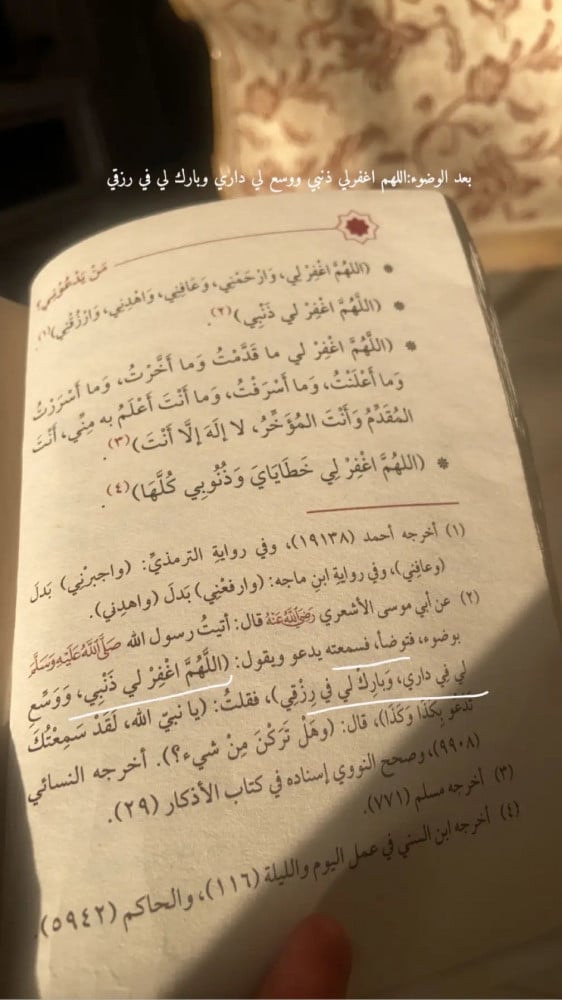 بعد الوضوء:اللهم اغفرلي ذنبي ووسع لي داري وبارك لي في رزقي
مَنْ يَدْعُونِي؟
* (اللهُمَّ اغْفِرْ لِي، وَارْحَمْنِي، وَعَافِنِي، وَاهْدِنِي، وَارْزُقْنِي)(١).
* (اللَّهُمَّ اغْفِرْ لي ذَنْبِي)(٢).
* (اللَّهُمَّ اغْفِرْ لي ما قَدَّمْتُ وَما أَخَّرْتُ، وَما أَسْرَرْتُ
وَما أَعْلَنْتُ، وَما أَسْرَفْتُ، وَما أَنْتَ أَعْلَمُ به مِنِّي، أَنْتَ
المُقَدِّمُ وَأَنْتَ المُؤَخِّرُ، لا إلَهَ إلَّا أَنْتَ)(٣).
* (اللهُمَّ اغْفِرْ لِي خَطَايَايَ وَذُنُوبِي كُلَّهَا)(٤).
(١) أخرجه أحمد (١٩١٣٨)، وفي روايةِ الترمذيِّ: (واجبرْني) بَدلَ
(وعافِني)، وفي روايةِ ابنِ ماجه: (وارفعْنِي) بَدَلَ (واهدِني).
(٢) عن أبي موسى الأشعري رَضِيَ اللَّهُ عَنْهُ قال: أتيتُ رسول الله صَلَّى اللَّهُ عَلَيْهِ وَسَلَّمَ
بوضوء، فتوضأ، فسمعته يدعو ويقول: (اللَّهُمَّ اغْفِرْ لي ذَنْبِي، وَوَسِّعْ
لِي فِي دارِي، وَبارِكْ لي في رِزْقِي)، فقلتُ: (يا نبيَّ الله، لَقَدْ سَمِعْتُكَ
تَدْعُو بِكَذَا وَكَذَا)، قال: (وهَلْ تَرَكْنَ مِنْ شيء؟). أخرجه النسائي
(٩٩٠٨)، وصحح النووي إسناده في كتاب الأذكار (٢٩).
(٣) أخرجه مسلم (٧٧١).
(٤) أخرجه ابن السني في عمل اليوم والليلة (١١٦)، والحاكم (٥٩٤٢).